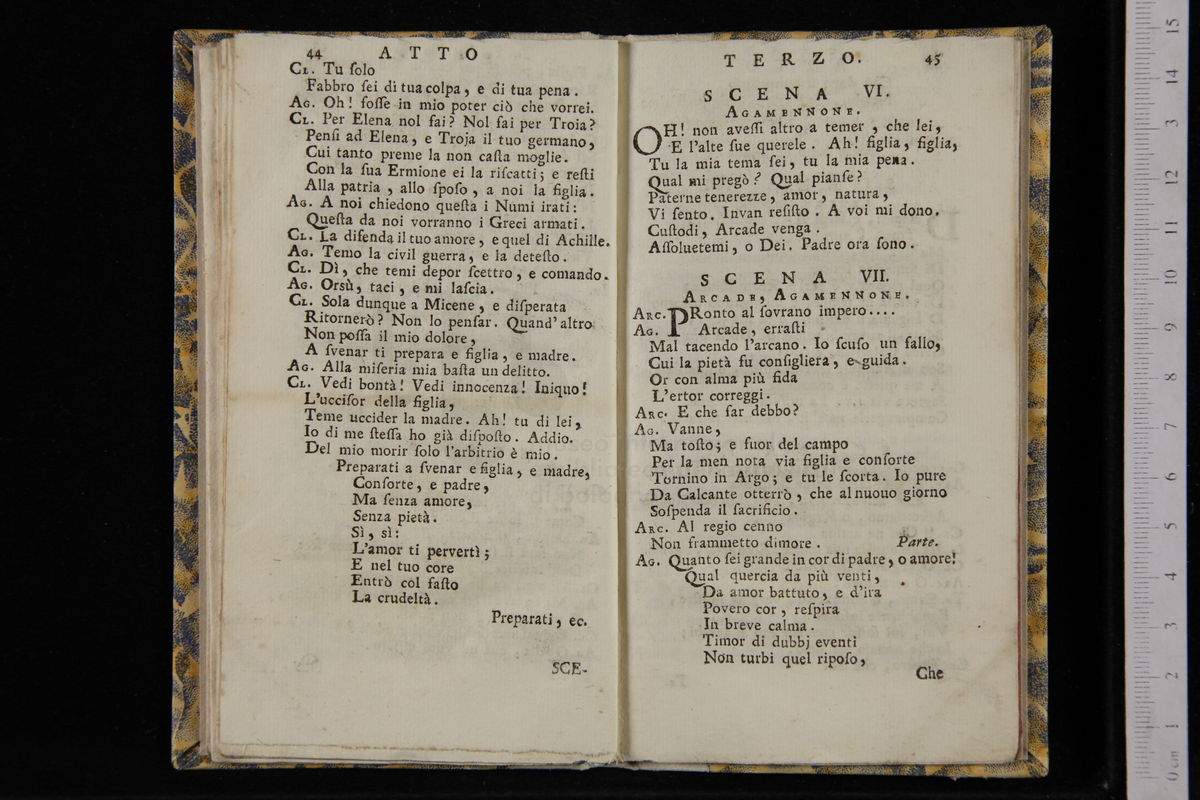 44 ATTO
CL. Tu ſolo
Fabbro ſei di tua colpa, e di tua pena.
AG. Oh! foſſe in mio poter ciò che vorrei.
CL. Per Elena nol fai? Nol fai per Troia?
Penſi ad Elena, e Troja il tuo germano,
Cui tanto preme la non caſta moglie.
Con la ſua Ermione ei la riſcatti; e reſti
Alla patria, allo ſpoſo, a noi la figlia.
AG. A noi chiedono queſta i Numi irati:
Queſta da noi vorranno i Greci armati.
CL. La difenda il tuo amore, e quel di Achille.
AG. Temo la civil guerra, e la deteſto.
CL. Dì, che temi depor ſcettro, e comando.
AG. Orsù, taci, e mi laſcia.
CL. Sola dunque a Micene, e diſperata
Ritornerò? Non lo penſar. Quand'altro
Non poſſa il mio dolore,
A ſvenar ti prepara e figlia, e madre.
AG. Alla miſeria mia baſta un delitto.
CL. Vedi bontà! Vedi innocenza! Iniquo!
L'ucciſor della figlia,
Teme uccider la madre. Ah! tu di lei,
Io di me ſteſſa ho già diſpoſto. Addio.
Del mio morir ſolo l'arbitrio è mio.
Preparati a ſvenar e figlia, e madre,
Conſorte, e padre,
Ma ſenza amore,
Senza pietà.
Sì, sì:
L'amor ti pervertì;
E nel tuo core
Entrò col faſto
La crudeltà.
Preparati, ec.
SCE-
TERZO. 45
SCENA VI.
AGAMENNONE.
OH! non aveſſi altro a temer, che lei,
E l'alte ſue querele. Ah! figlia, figlia,
Tu la mia tema ſei, tu la mia pena.
Qual mi pregò? Qual pianſe?
Paterne tenerezze, amor, natura,
Vi ſento. Invan reſiſto. A voi mi dono.
Cuſtodi, Arcade venga.
Aſſoluetemi, o Dei. Padre ora ſono.
SCENA VII.
ARCADE, AGAMENNONE.
ARC. PRonto al ſovrano impero....
AG. Arcade, erraſti
Mal tacendo l'arcano. Io ſcuſo un fallo,
Cui la pietà fu conſigliera, e guida.
Or con alma più fida
L'ertor correggi.
ARC. E che far debbo?
AG. Vanne,
Ma toſto; e fuor del campo
Per la men nota via figlia e conſorte
Tornino in Argo; e tu le ſcorta. Io pure
Da Calcante otterrò, che al nuouo giorno
Soſpenda il ſacrificio.
ARC. Al regio cenno
Non frammetto dimore. Parte.
AG. Quanto ſei grande in cor di padre, o amore!
Qual quercia da più venti,
Da amor battuto, e d'ira
Povero cor, reſpira
In breve calma.
Timor di dubbj eventi
Non turbi quel ripoſo,
Che